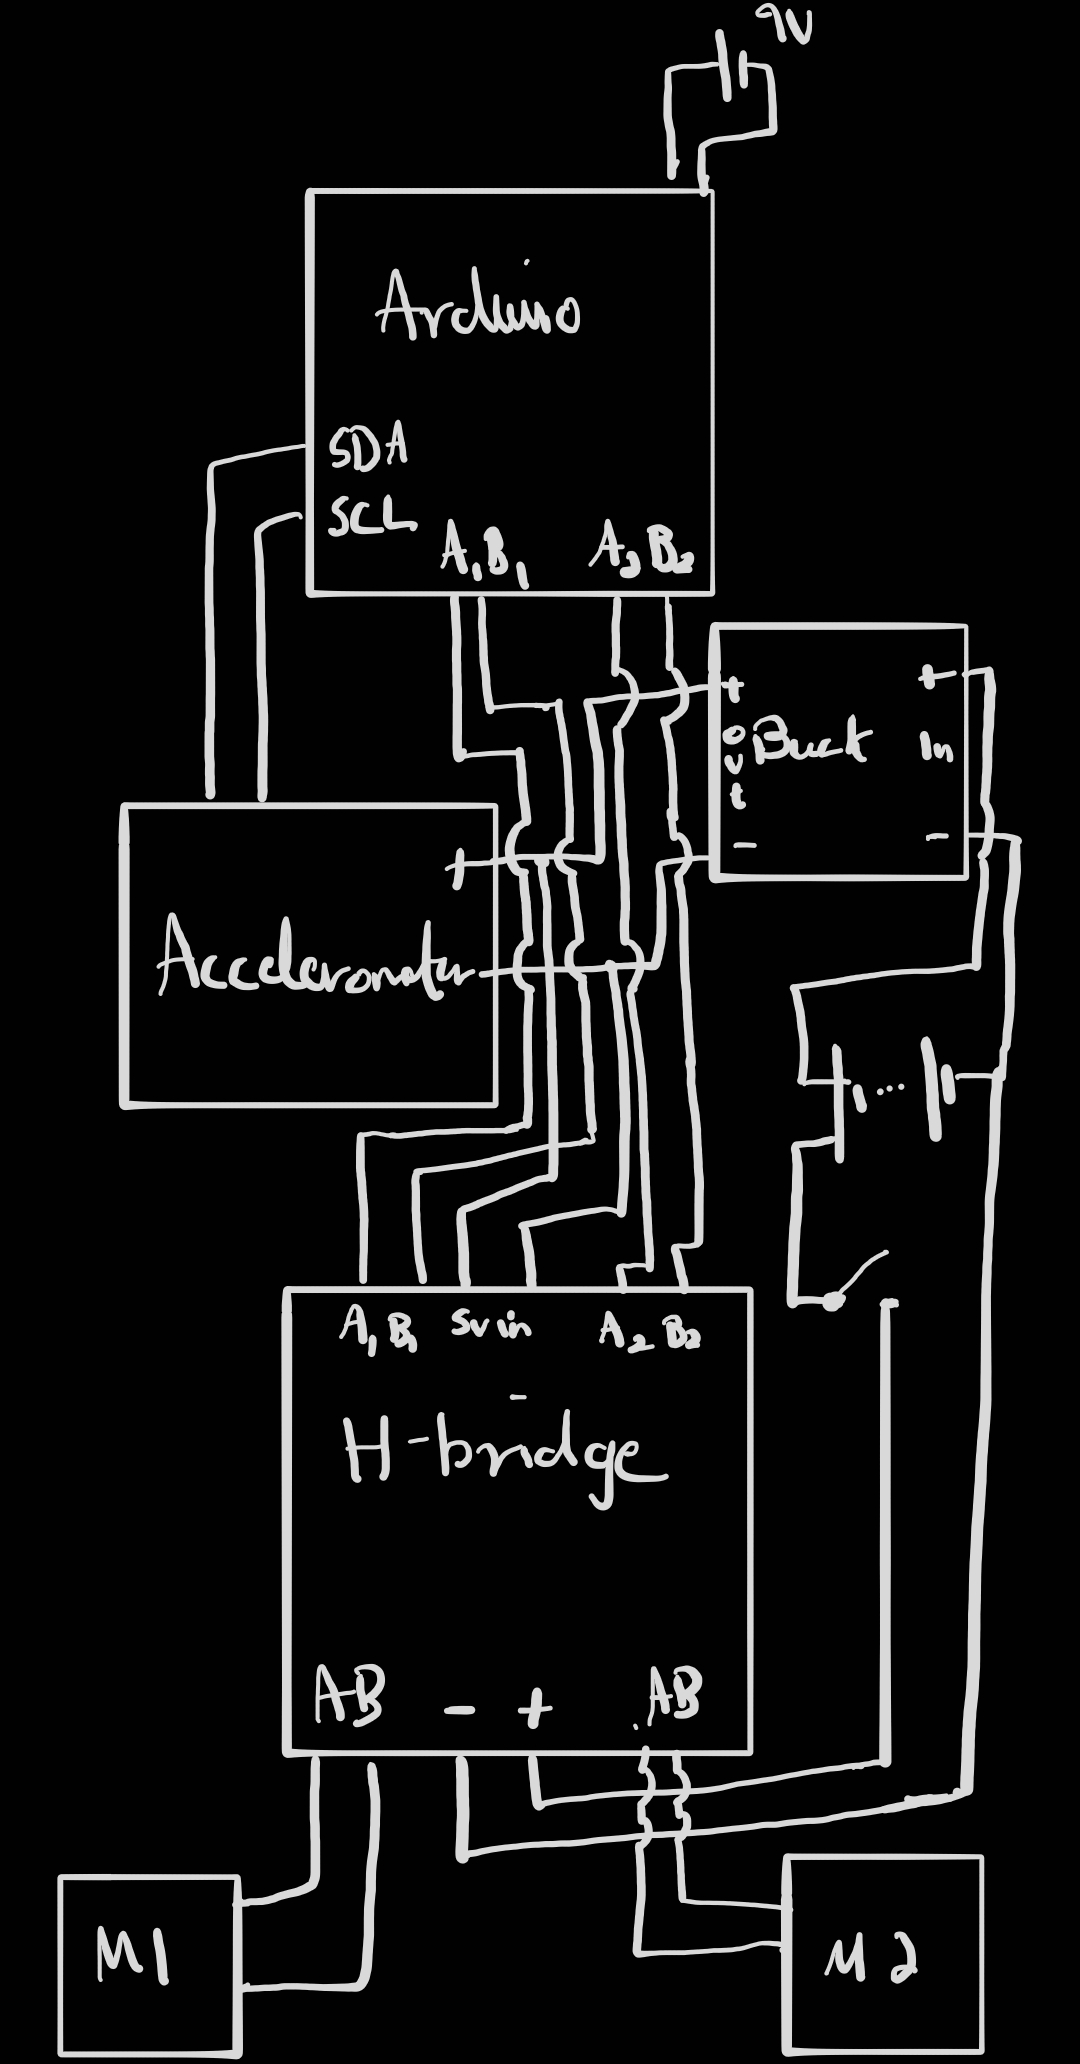 9V
Arduino
SDA
SCL
A₁B₁ A₂B₂
+ +
out Buck In
- -
+
Accelerometer
A₁ B₁ 5v in A₂ B₂
-
H-bridge
AB - + AB
M1 M2